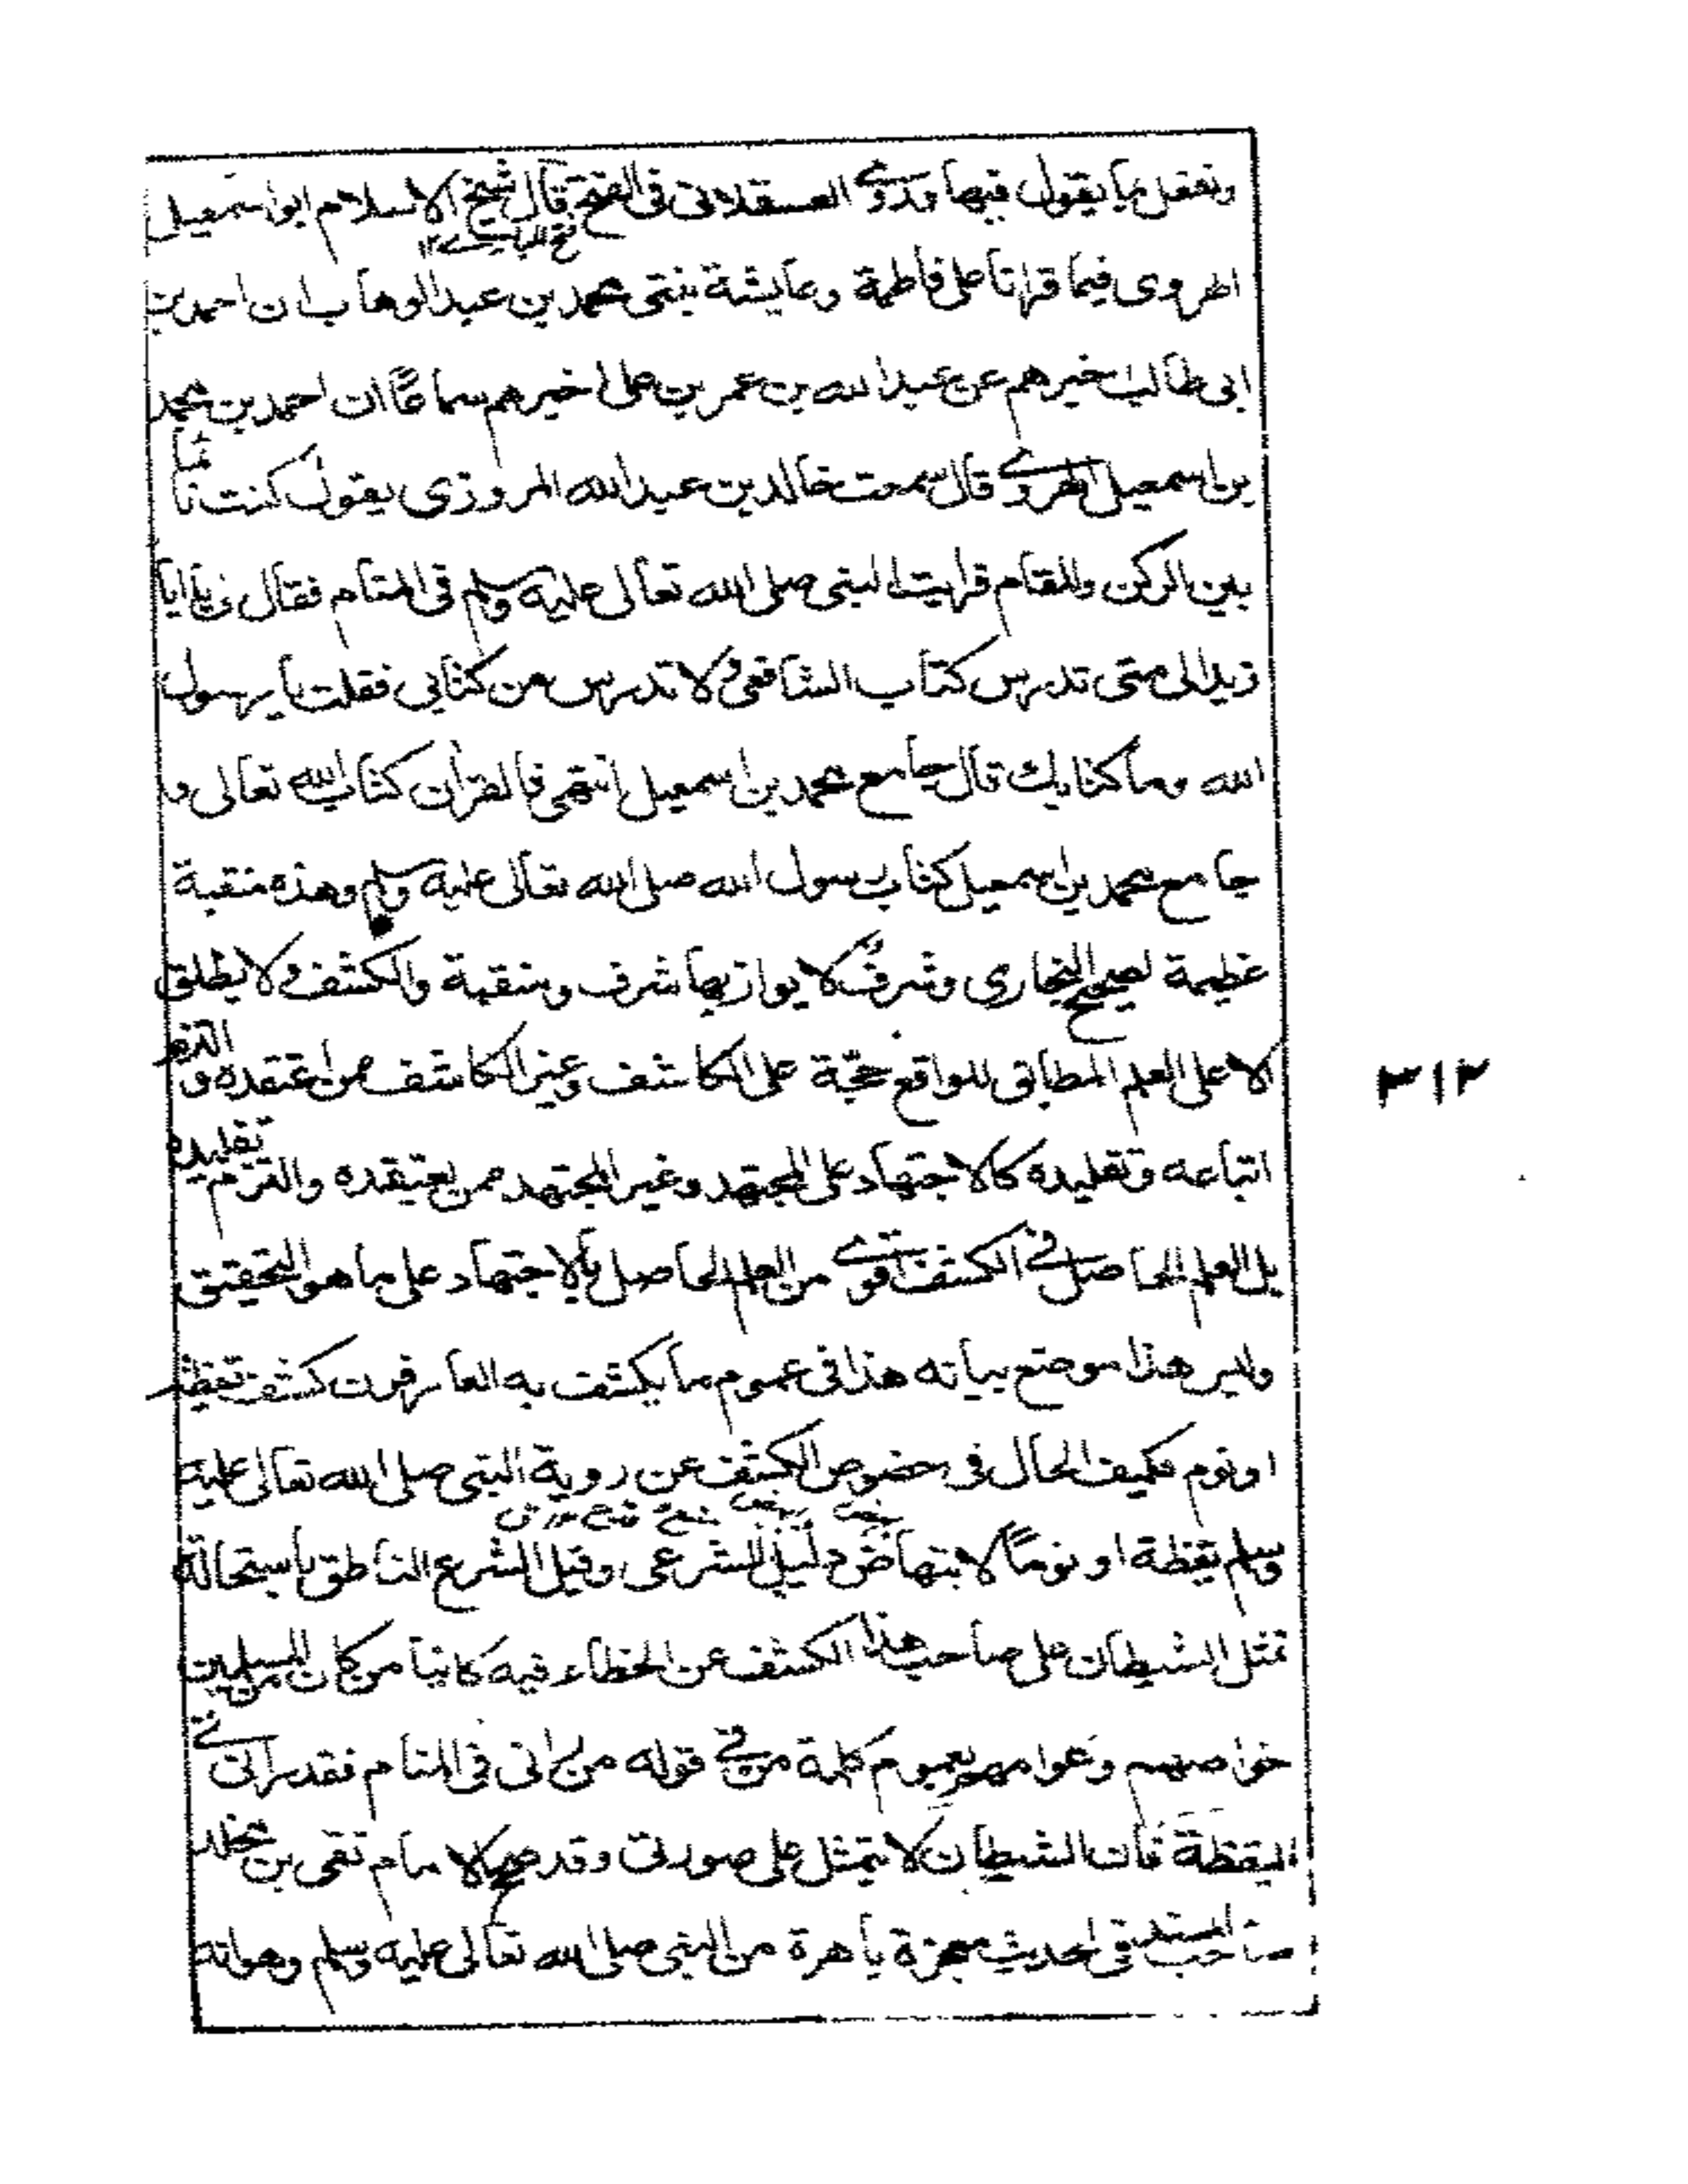 ونفعل ما يقول فيها وروى العسقلانى فى الفتح قال شيخ الاسلام ابو اسمعيل
فتح البارى ١٢
الهروى فيما قرانا على فاطمة وعايشة بنتى محمد بن عبد الوهاب ان احمد بن
ابى طالب اخبرهم عن عبد الله بن عمر بن على اخبرهم سماعًا ان احمد بن محمد
بن اسمعيل الهروى قال سمعت خالد بن عبد الله المروزى يقول كنت نائما
بين الركن والمقام فرايت النبى صلى الله تعالى عليه وسلم فى المنام فقال لى يا ابا
زيد الى متى تدرس كتاب الشافعى ولا تدرس من كتابى فقلت يا رسول
الله وما كتابك قال جامع محمد بن اسمعيل انتهى فالقرآن كتاب الله تعالى و
جامع محمد بن اسمعيل كتاب رسول الله صلى الله تعالى عليه وسلم وهذه منقبة
عظيمة لصحيح البخارى وشرف لا يوازيها شرف ومنقبة والكشف ولا يطلق
الا على العلم المطابق للواقع حجّة على الكاشف وغير الكاشف من اعتقده و التزم
اتباعه وتقليده كالاجتهاد على المجتهد وغير المجتهد ممن يعتقده والتزم تقليده
بل العلم الحاصل فى الكشف اقوى من العلم الحاصل بالاجتهاد على ما هو التحقيق
وليس هذا موضع بيانه هذا فى عموم ما يكشف به العارفون كشف يقظة
او نوم فكيف الحال فى خصوص الكشف عن روية النبى صلى الله تعالى عليه
وسلم يقظة او نومًا لانتهاض دليل الشرعى وقيل الشرع الناطق باستحالة
تمثل الشيطان على صاحب هذا الكشف عن الخطاء فيه كائنا من كان من المسلمين
خواصهم وعوامهم بعموم كلمة من فى قوله من رانى فى المنام فقد رانى فى
اليقظة فان الشيطان لا يتمثل على صورتى وقد صح للامام تقى بن مخلد
صاحب المسند فى الحديث معجزة باهرة من النبى صلى الله تعالى عليه وسلم وهو انه
٣١٢